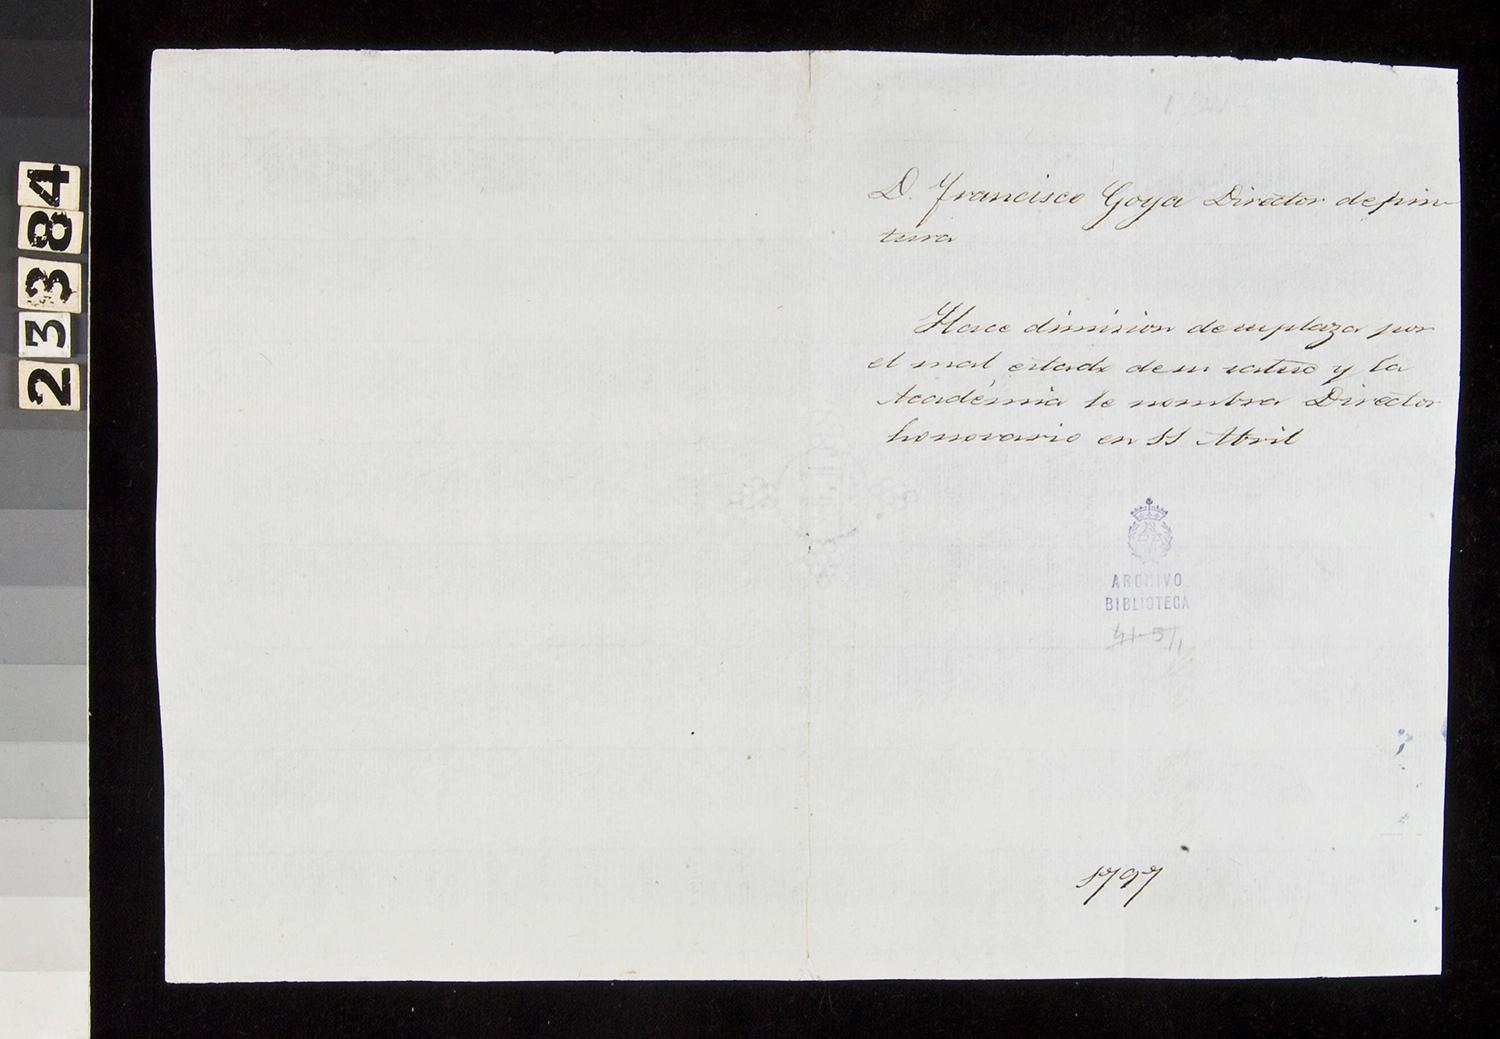 D. Francisco Goya Director de pin-
tura
Hace dimision de su plaza por
el mal estado de su salud y la
Academia le nombra Director
honorario en 11 Abril
ARCHIVO
BIBLIOTECA
41-5/1
1797
23384